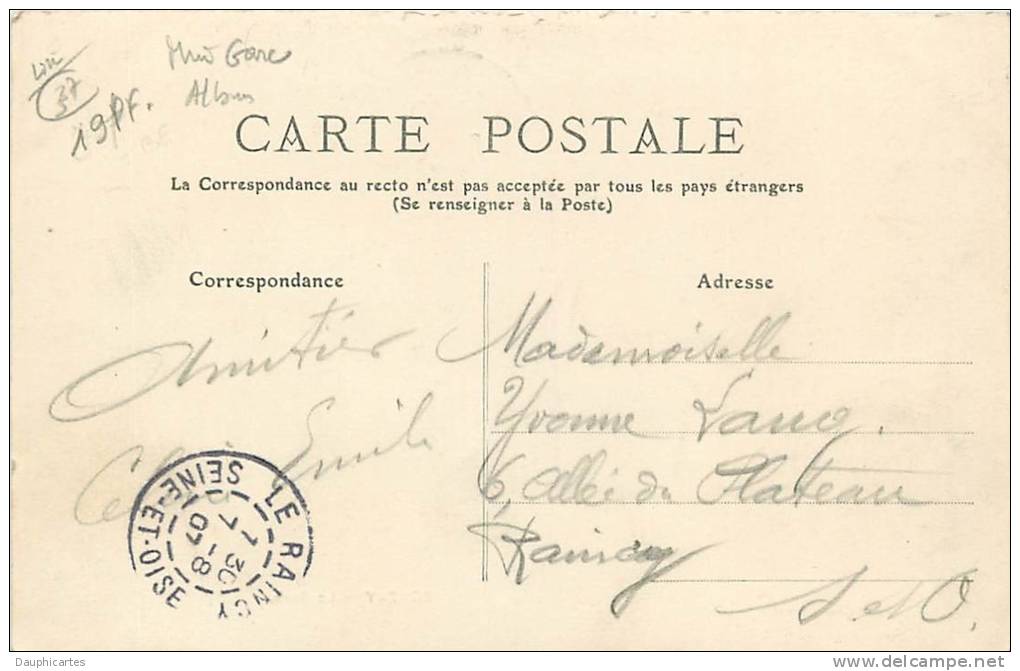 37
Gare
Album
19
CARTE POSTALE
La Correspondance au recto n'est pas acceptée par tous les pays étrangers
(Se renseigner à la Poste)
Correspondance
Adresse
Amitiés
Emile
Mademoiselle
Yvonne
6, Allée du Plateau
Raincy
S et O.
LE RAINCY
SEINE-ET-OISE
7 30
1-8
07
Dauphicartes
www.delcampe.net